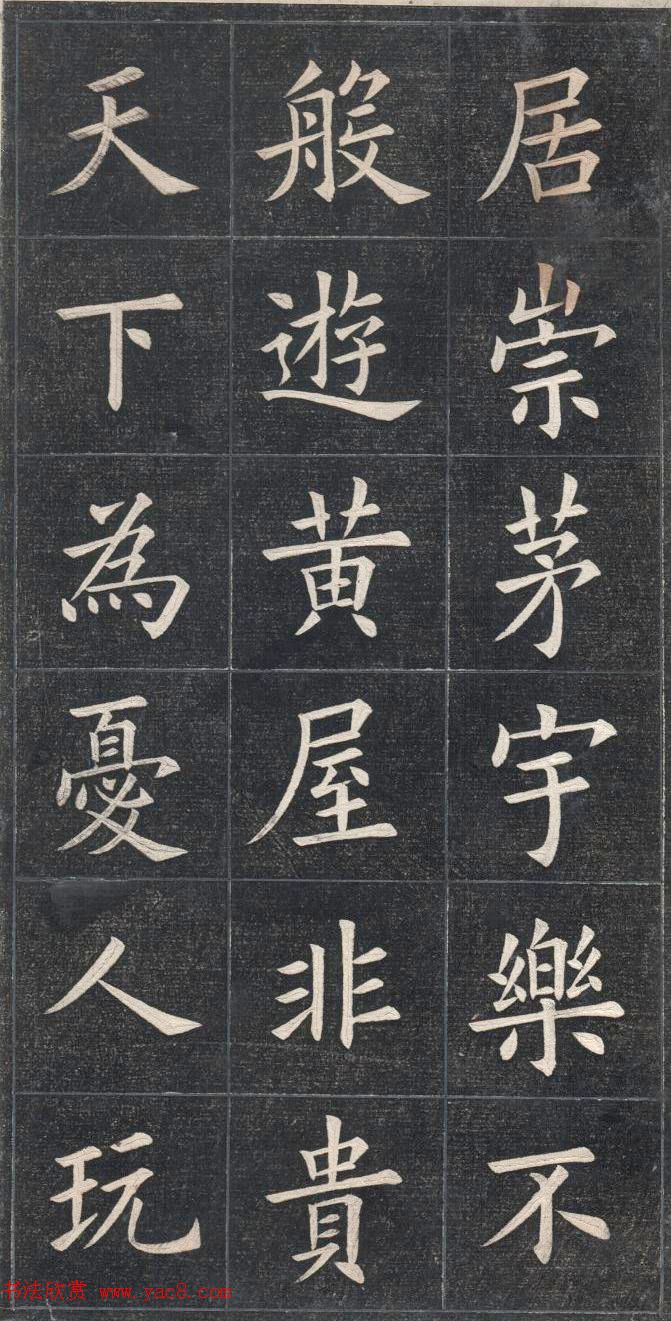 居崇茅宇樂不
般遊黄屋非貴
天下為憂人玩
书法欣赏 www.yac8.com